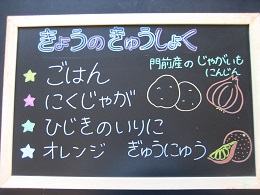 きょうの きゅうしょく
門前産の じゃがいも
にんじん
ごはん
にくじゃが
ひじきのいりに
オレンジ ぎゅうにゅう